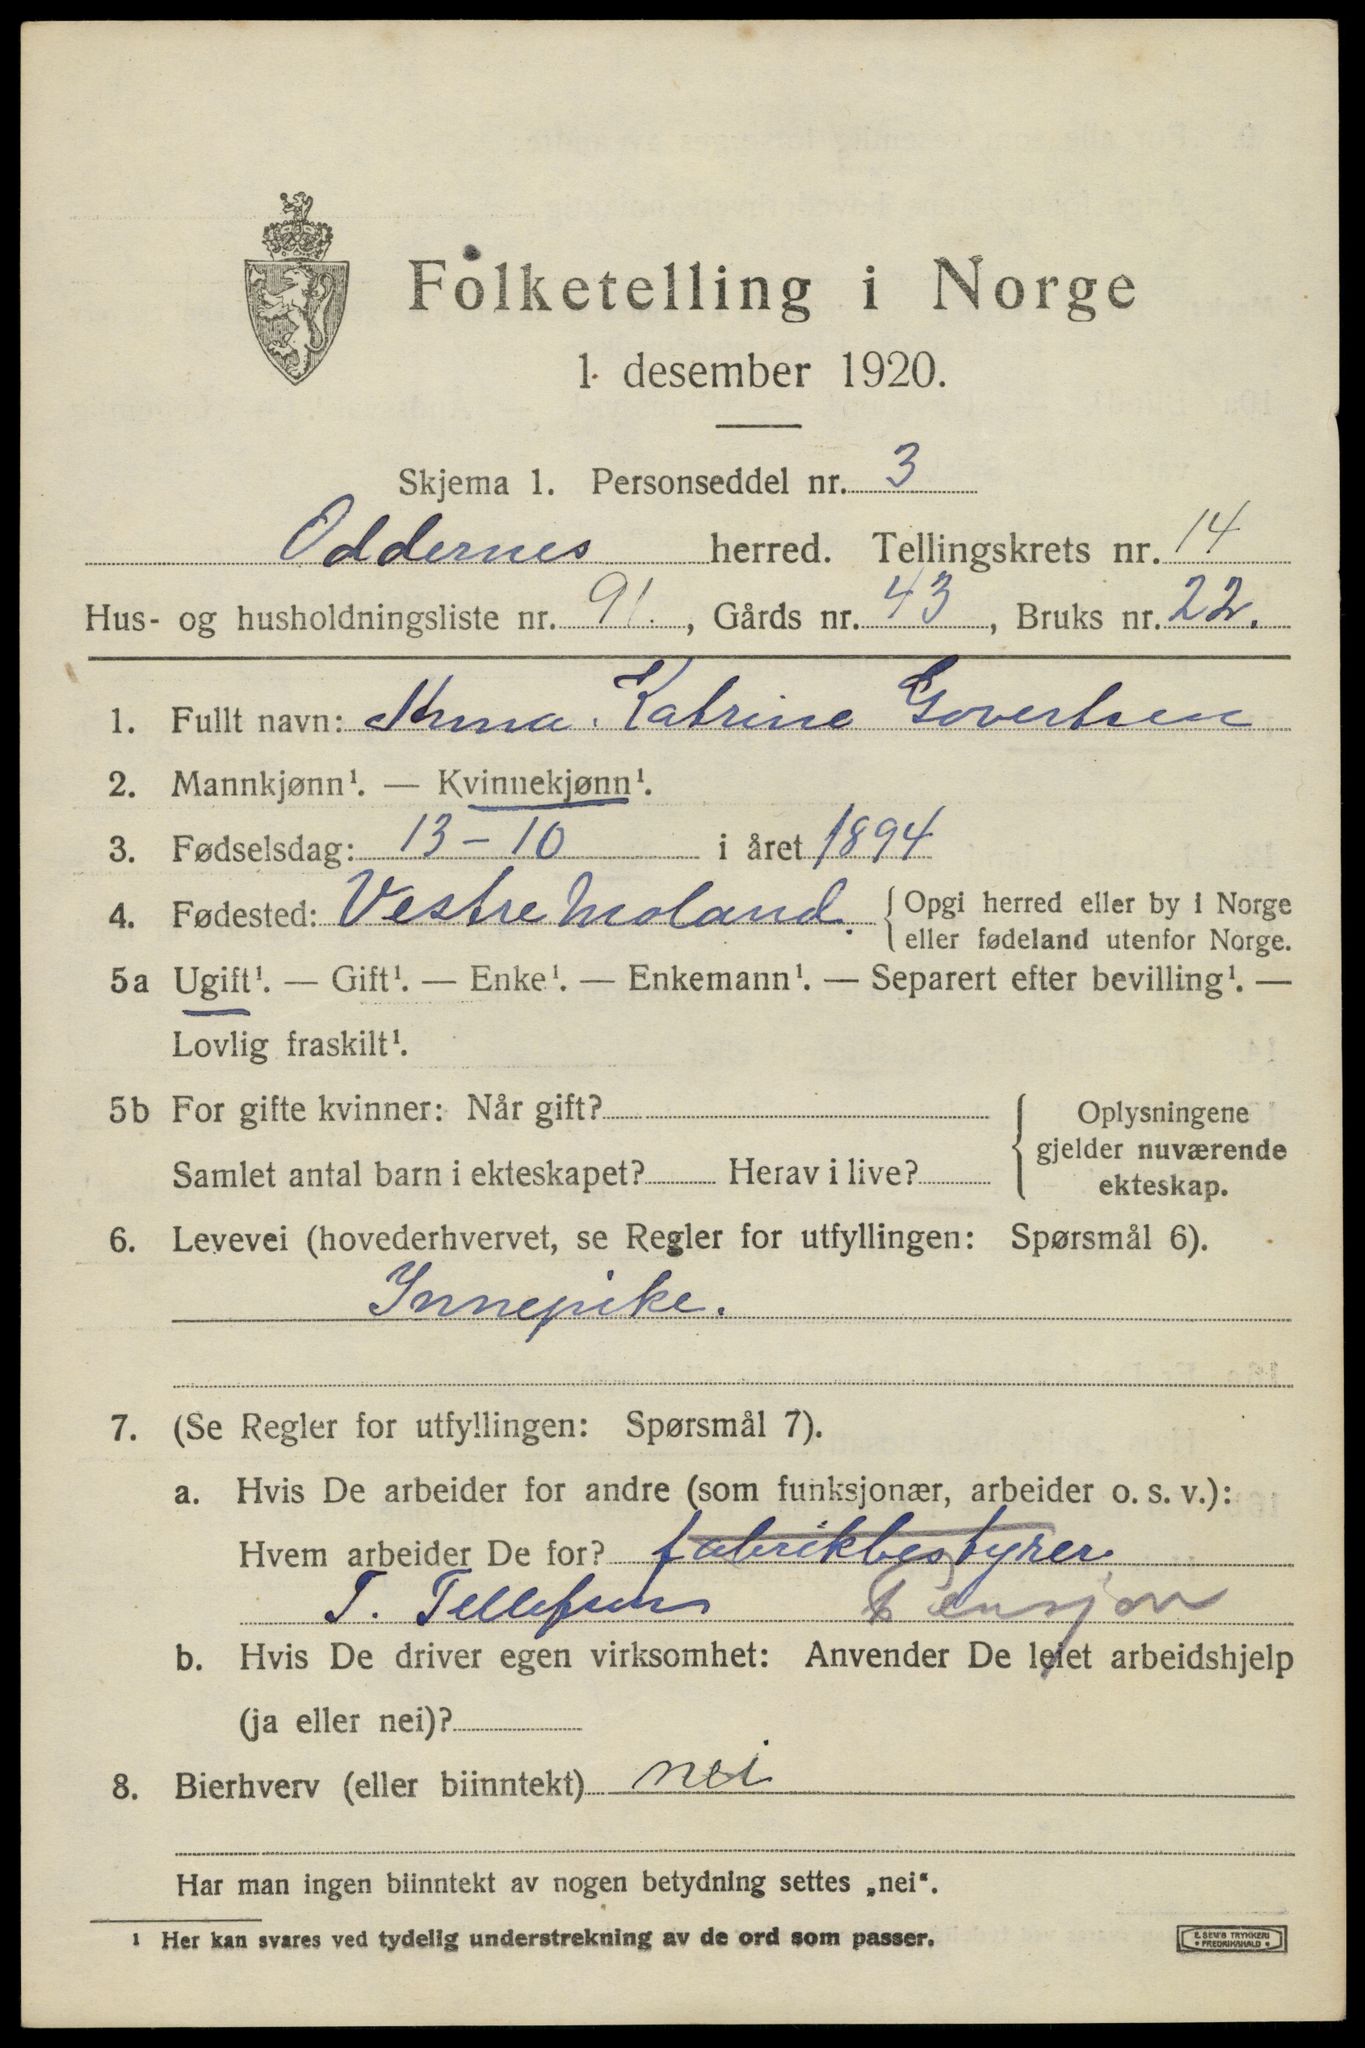 Folketelling i Norge
1. desember 1920.
Skjema 1. Personseddel nr. 3
Oddernes herred. Tellingskrets nr. 14
Hus- og husholdningsliste nr. 91., Gårds nr. 43, Bruks nr. 22.
1. Fullt navn: Anna Katrine Govertsen
2. Mannkjønn¹. — Kvinnekjønn¹.
3. Fødselsdag: 13-10 i året 1894
4. Fødested: Vestre Moland. { Opgi herred eller by i Norge
eller fødeland utenfor Norge.
5a Ugift¹. — Gift¹. — Enke¹. — Enkemann¹. — Separert efter bevilling¹. —
Lovlig fraskilt¹.
5b For gifte kvinner: Når gift?
Samlet antal barn i ekteskapet? Herav i live?
{ Oplysningene
gjelder nuværende
ekteskap.
6. Levevei (hovederhvervet, se Regler for utfyllingen: Spørsmål 6).
Innepike.
7. (Se Regler for utfyllingen: Spørsmål 7).
a. Hvis De arbeider for andre (som funksjonær, arbeider o. s. v.):
Hvem arbeider De for? fabrikbestyrer
T. Tellefsen Pensjon
b. Hvis De driver egen virksomhet: Anvender De leiet arbeidshjelp
(ja eller nei)?
8. Bierhverv (eller biinntekt) nei
Har man ingen biinntekt av nogen betydning settes „nei“.
¹ Her kan svares ved tydelig understrekning av de ord som passer.
E. SEM'S TRYKKERI
FREDRIKSHALD